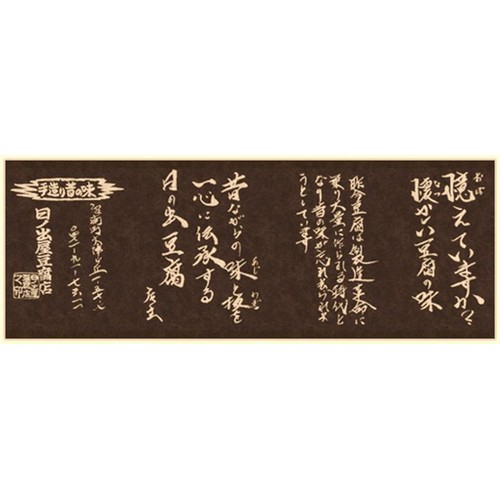 憶えていますか?
おぼ
懐かしい豆腐の味
なつ
昨今豆腐は製造革命に
乗り大量に作られる時代と
なり昔の味が忘れ去られよ
うとしています
昔ながらの味と技を
あじ わざ
一心に伝承する
日の出豆腐
店主
手造り昔の味
日ノ出屋豆腐店